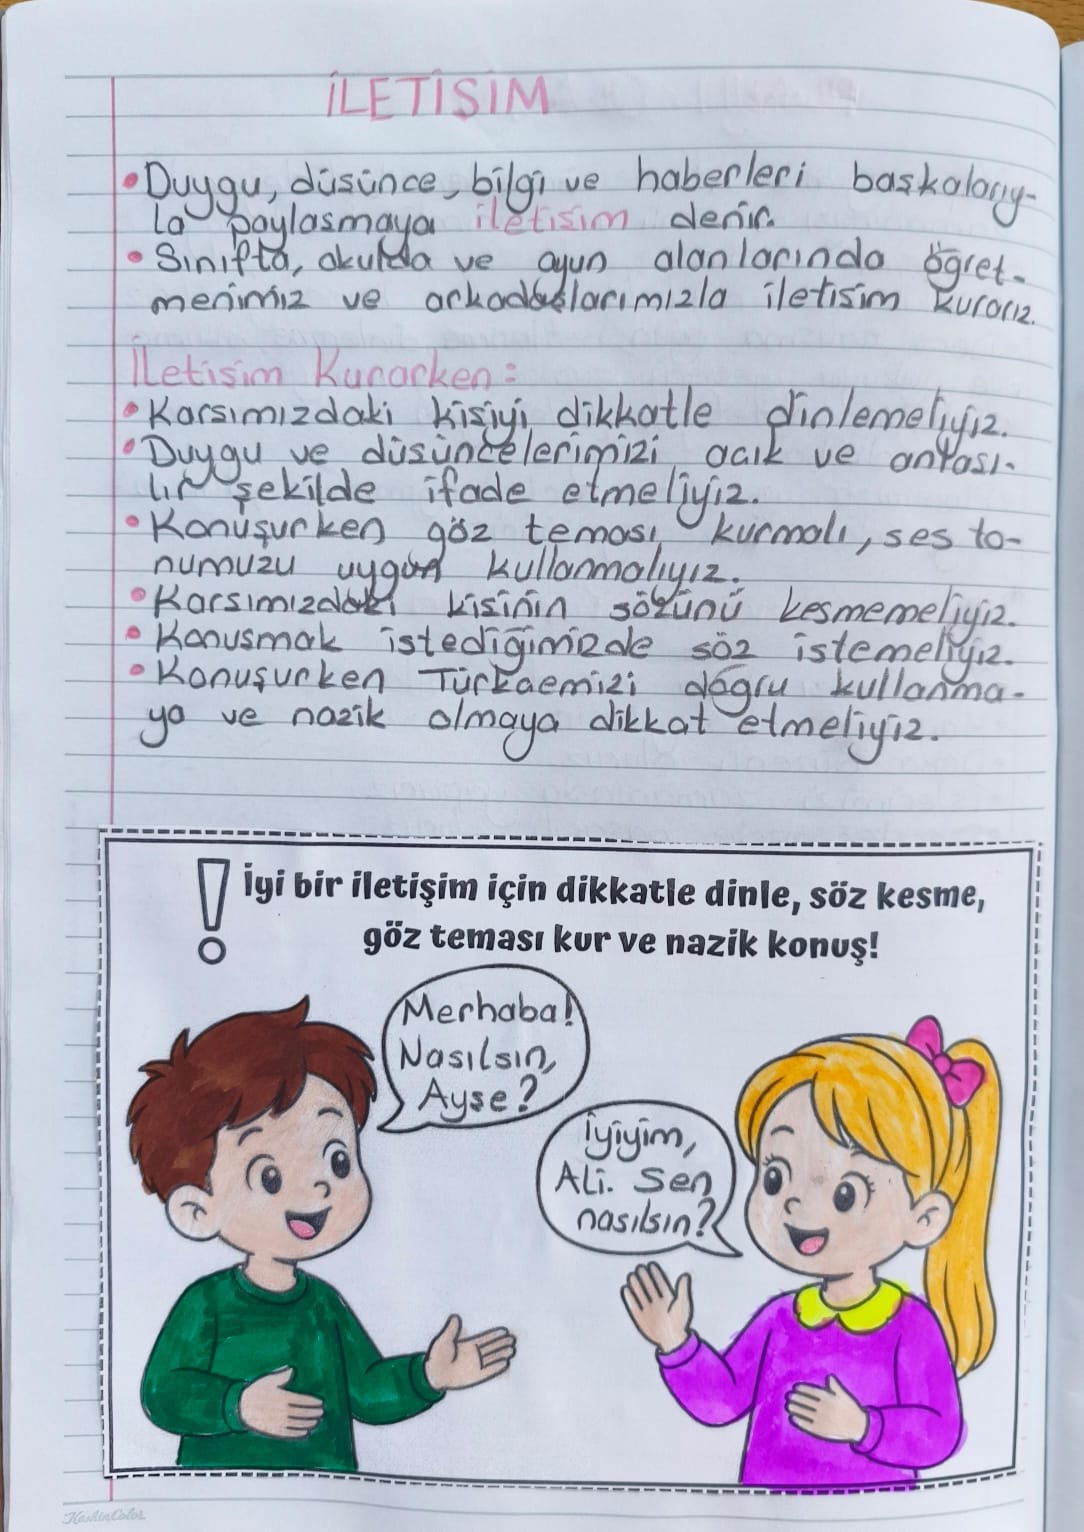 İLETİŞİM
• Duygu, düşünce, bilgi ve haberleri başkalarıy-
la paylaşmaya iletişim denir.
• Sınıfta, okulda ve oyun alanlarında öğret-
menimiz ve arkadaşlarımızla iletişim kurarız.
İletişim Kurarken:
• Karşımızdaki kişiyi dikkatle dinlemeliyiz.
• Duygu ve düşüncelerimizi açık ve anlaşı-
lır şekilde ifade etmeliyiz.
• Konuşurken göz teması kurmalı, ses to-
numuzu uygun kullanmalıyız.
• Karşımızdaki kişinin sözünü kesmemeliyiz.
• Konuşmak istediğimizde söz istemeliyiz.
• Konuşurken Türkçemizi doğru kullanma-
ya ve nazik olmaya dikkat etmeliyiz.
! İyi bir iletişim için dikkatle dinle, söz kesme,
göz teması kur ve nazik konuş!
Merhaba!
Nasılsın,
Ayşe?
İyiyim,
Ali. Sen
nasılsın?
KashinColor